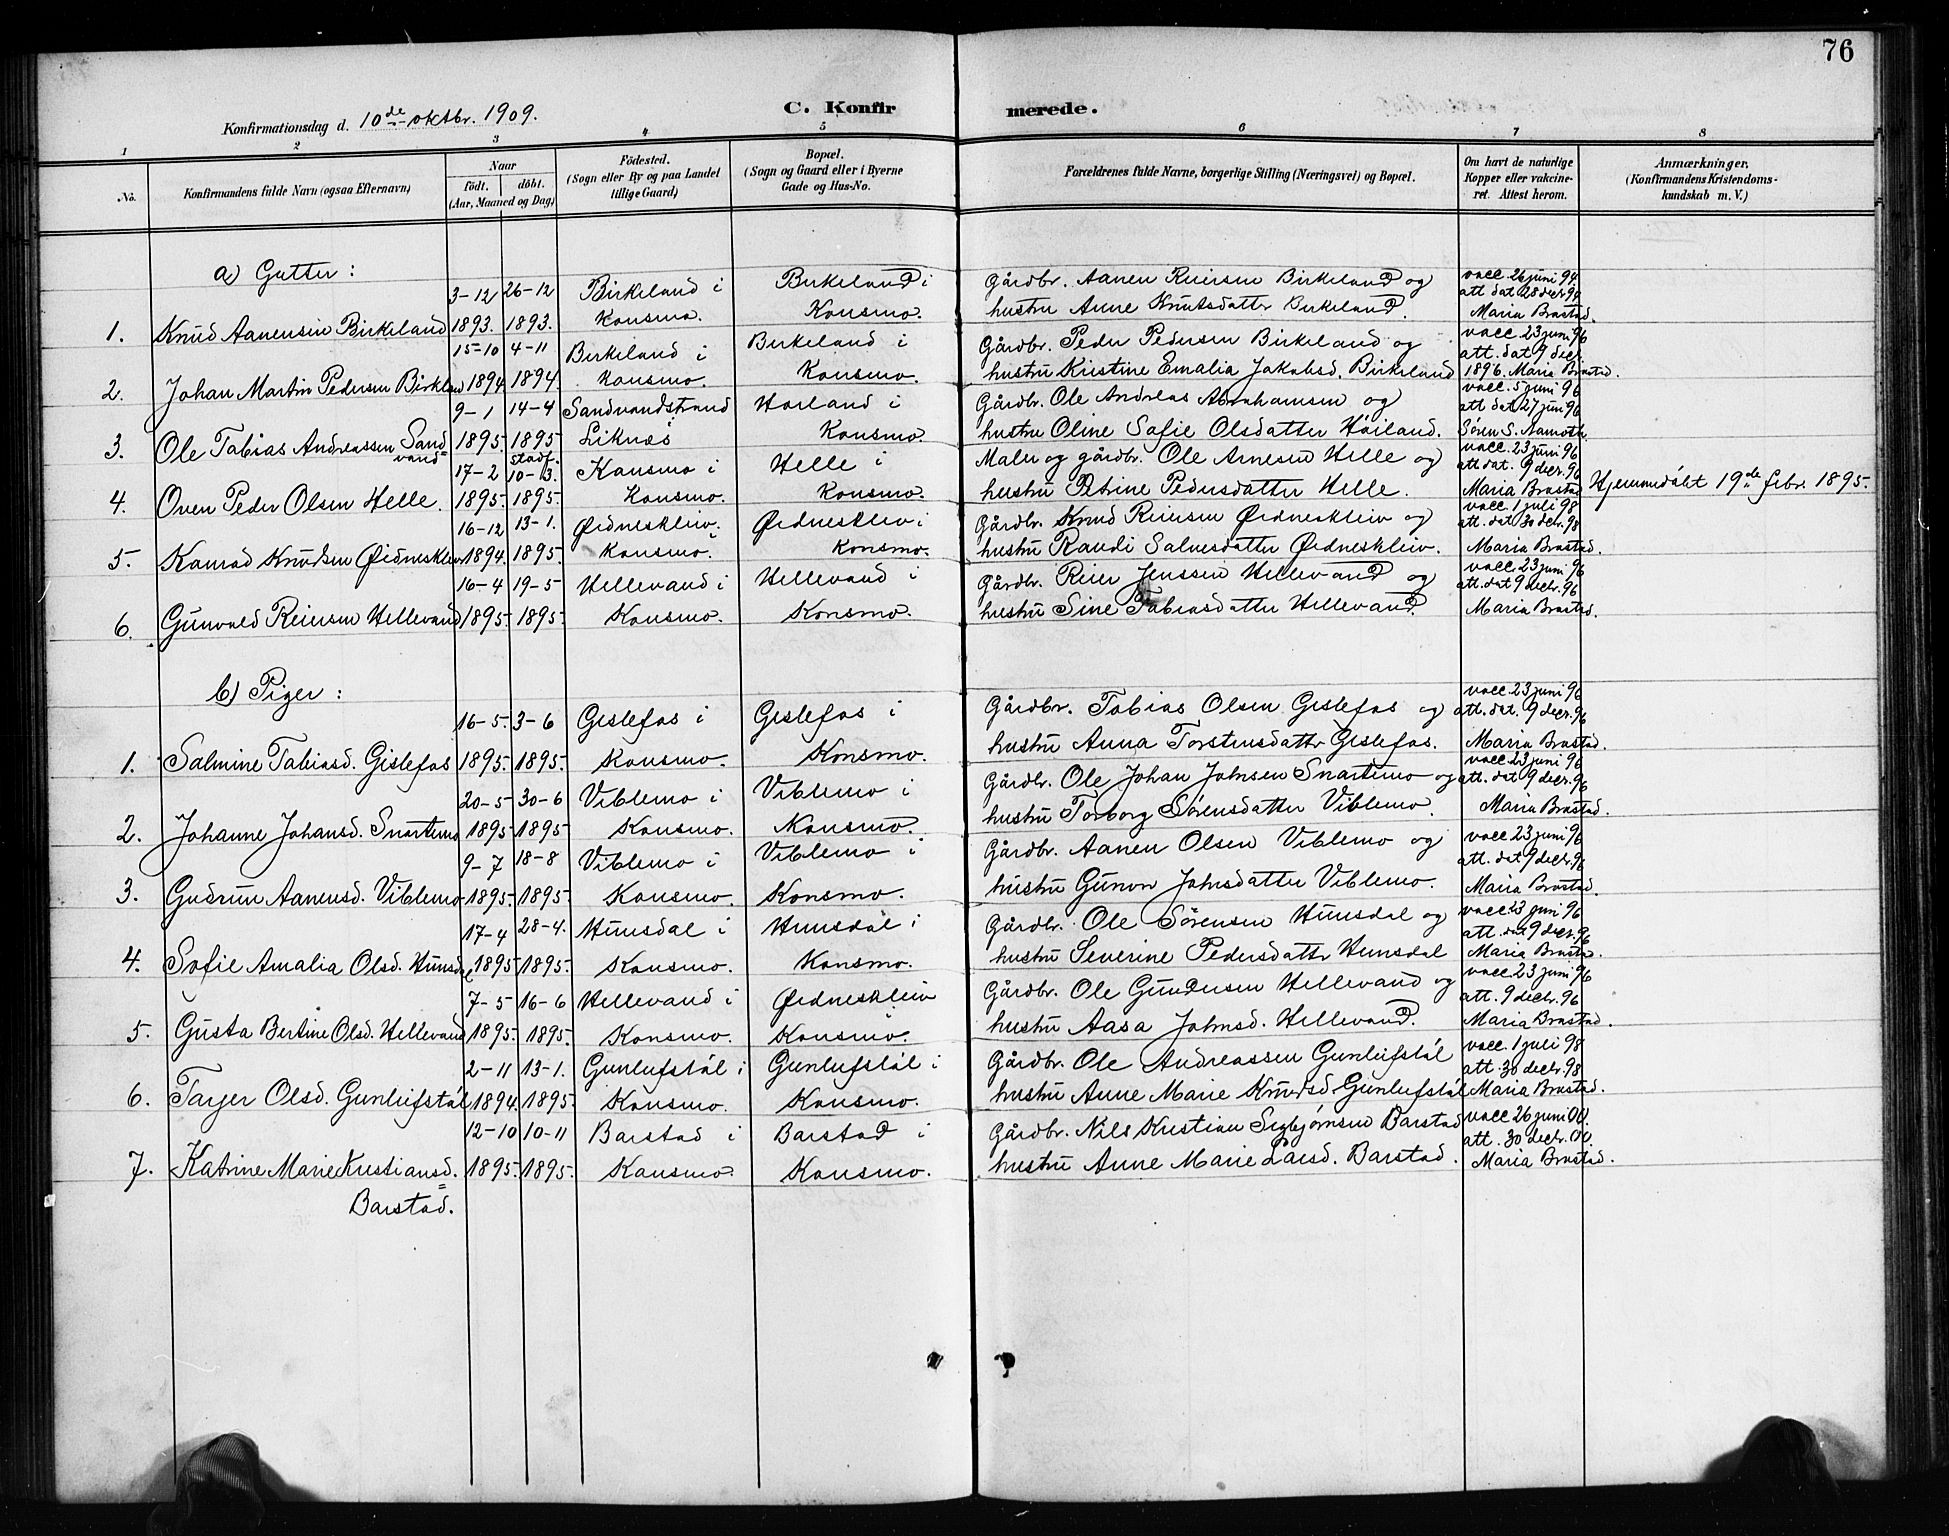 76
C. Konfirmerede.
Konfirmationsdag d. 10de oktbr. 1909.
1 2 3 4 5 6 7 8
No.
Konfirmandens fulde Navn (ogsaa Efternavn)
Naar
født. døbt.
(Aar, Maaned og Dag)
Födested.
(Sogn eller By og paa Landet
tillige Gaard)
Bopæl.
(Sogn og Gaard eller i Byerne
Gade og Hus-No.
Forældrenes fulde Navne, borgerlige Stilling (Næringsvei) og Bopæl.
Om havt de naturlige
Kopper eller vakcine-
ret. Attest herom.
Anmærkninger.
(Konfirmandens Kristendoms-
kundskab m. V.)
a) Gutter:
3-12 26-12 Birkeland i Birkeland i Gårdbr. Aanen Reiersen Birkeland og vacc. 26 juni 94.
att dat 28 decr 94
1. Knud Aanensen Birkeland 1893. 1893. Konsmo. Konsmo. hustru Anne Knutsdatter Birkeland. Maria Brastad.
15-10 4-11 Birkeland i Birkeland i Gårdbr. Peder Pedersen Birkeland og vacc 23 juni 96
att. dat 9 decr
2. Johan Martin Pedersen Birkland 1894 1894 Konsmo. Konsmo. hustru Kristine Emalia Jakobsd. Birkeland 1896. Maria Brastad.
9-1 14-4 Sandvandstrand Høiland i Gårdbr. Ole Andreas Abrahamsen og vacc. 5 juni 96
att dat 27 juni 96
3. Ole Tobias Andreassen Sand= 1895 1895 Liknes Konsmo. hustru Oline Sofie Olsdatter Høiland. Søren S. Aamoth.
vand stadf.
17-2 10-3. Konsmo i Helle i Maler og gårdbr. Ole Arnesen Helle og vacc. 23 juni 96
att dat. 9 decr. 96
4. Oven Peder Olsen Helle. 1895. 1895. Konsmo. Konsmo. hustru Petrine Pedersdatter Helle. Maria Brastad Hjemmedøbt 19de febr. 1895.
16-12 13-1. Øidneskleiv. Øidneskleiv i Gårdbr. Knud Reiersen Øidneskleiv og vacc. 1 juli 98
att. dat 30 decr. 98
5. Konrad Knudsen Øidneskleiv 1894. 1895. Konsmo. Konsmo. hustru Randi Salvesdatter Øidneskleiv. Maria Brastad.
16-4 19-5 Hellevand i Hellevand i Gårdbr. Reier Jenssen Hellevand og vacc. 23 juni 96
att. dat 9 decr. 96
6. Gunvald Reiersen Hellevand 1895. 1895. Konsmo. Konsmo. hustru Sine Tobiasdatter Hellevand. Maria Brastad.
b) Piger:
16-5. 3-6 Geslefos i Geslefos i Gårdbr. Tobias Olsen Geslefos og vacc. 23 juni 96
att. dat. 9 decr. 96
1. Salmine Tobiasd. Gislefos 1895. 1895. Konsmo. Konsmo. hustru Anna Torstensdattr Geslefos. Maria Brastad.
20-5 30-6 Viblemo i Viblemo i Gårdbr. Ole Johan Johnsen Snartemo og vacc. 23 juni 96
att. dat 9 decr. 96
2. Johanne Johansd. Snartemo 1895 1895 Konsmo. Konsmo. hustru Torborg Sørensdatter Viblemo. Maria Brastad.
9-7 18-8 Viblemo i Viblemo i Gårdbr. Aanen Olsen Viblemo og vacc. 23 juni 96
att. dat 9 decr. 96
3. Gudrun Aanensd. Viblemo 1895. 1895. Konsmo. Konsmo. hustru Gunvor Johnsdatter Viblemo. Maria Brastad.
17-4 28-4. Hunsdal i Hunsdal i Gårdbr. Ole Sørensen Hunsdal og vacc. 23 juni 96
att. dat 9 decr. 96
4. Sofie Amalia Olsd. Hunsdal 1895 1895. Konsmo. Konsmo. hustru Severine Pedersdatter Hunsdal Maria Brastad.
7-5 16-6 Hellevand i Øidneskleiv Gårdbr. Ole Gundersen Hellevand og vacc. 23 juni 96
att. 9 decr. 96
5. Gusta Bertine Olsd. Hellevand 1895. 1895. Konsmo. Konsmo. hustru Aasa Johnsd. Hellevand. Maria Brastad.
2-11 13-1. Gunleifstøl i Gunleifstøl i Gårdbr. Ole Andreassen Gunleifstøl vacc. 1 juli 98
att. 30 decr. 98
6. Tarjer Olsd. Gunleifstøl 1894. 1895. Konsmo. Konsmo. hustru Anne Marie Knudsd. Gunleifstøl Maria Brastad.
12-10 10-11 Barstad i Barstad i Gårdbr. Nils Kristian Sigbjørnsen Barstad vacc. 26 juni 00.
att. 30 decr. 00.
7. Katrine Marie Kristiansd. 1895. 1895. Konsmo. Konsmo. hustru Anne Marie Larsd. Barstad. Maria Brastad.
Barstad.